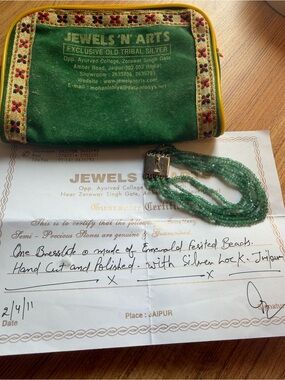 JEWELS 'N' ARTS
EXCLUSIVE OLD TRIBAL SILVER
Opp. Ayurved College, Zorawar Singh Gate
Amber Road, Jaipur-302 002
Showroom : 2635906,
Website : www.jewelsnarts.com
E-mail :
JEWELS
Opp. Ayurved College
Near Zorawar Singh Gate,
Guarantee
This is to certify that the following
Semi - Precious Stones are genuine &
One Bresslate is made of Emerald Fesited Beads.
Hand Cut and Polished. with Silver Lock. Jaipur
X X
2/4/11
Date
Place : JAIPUR